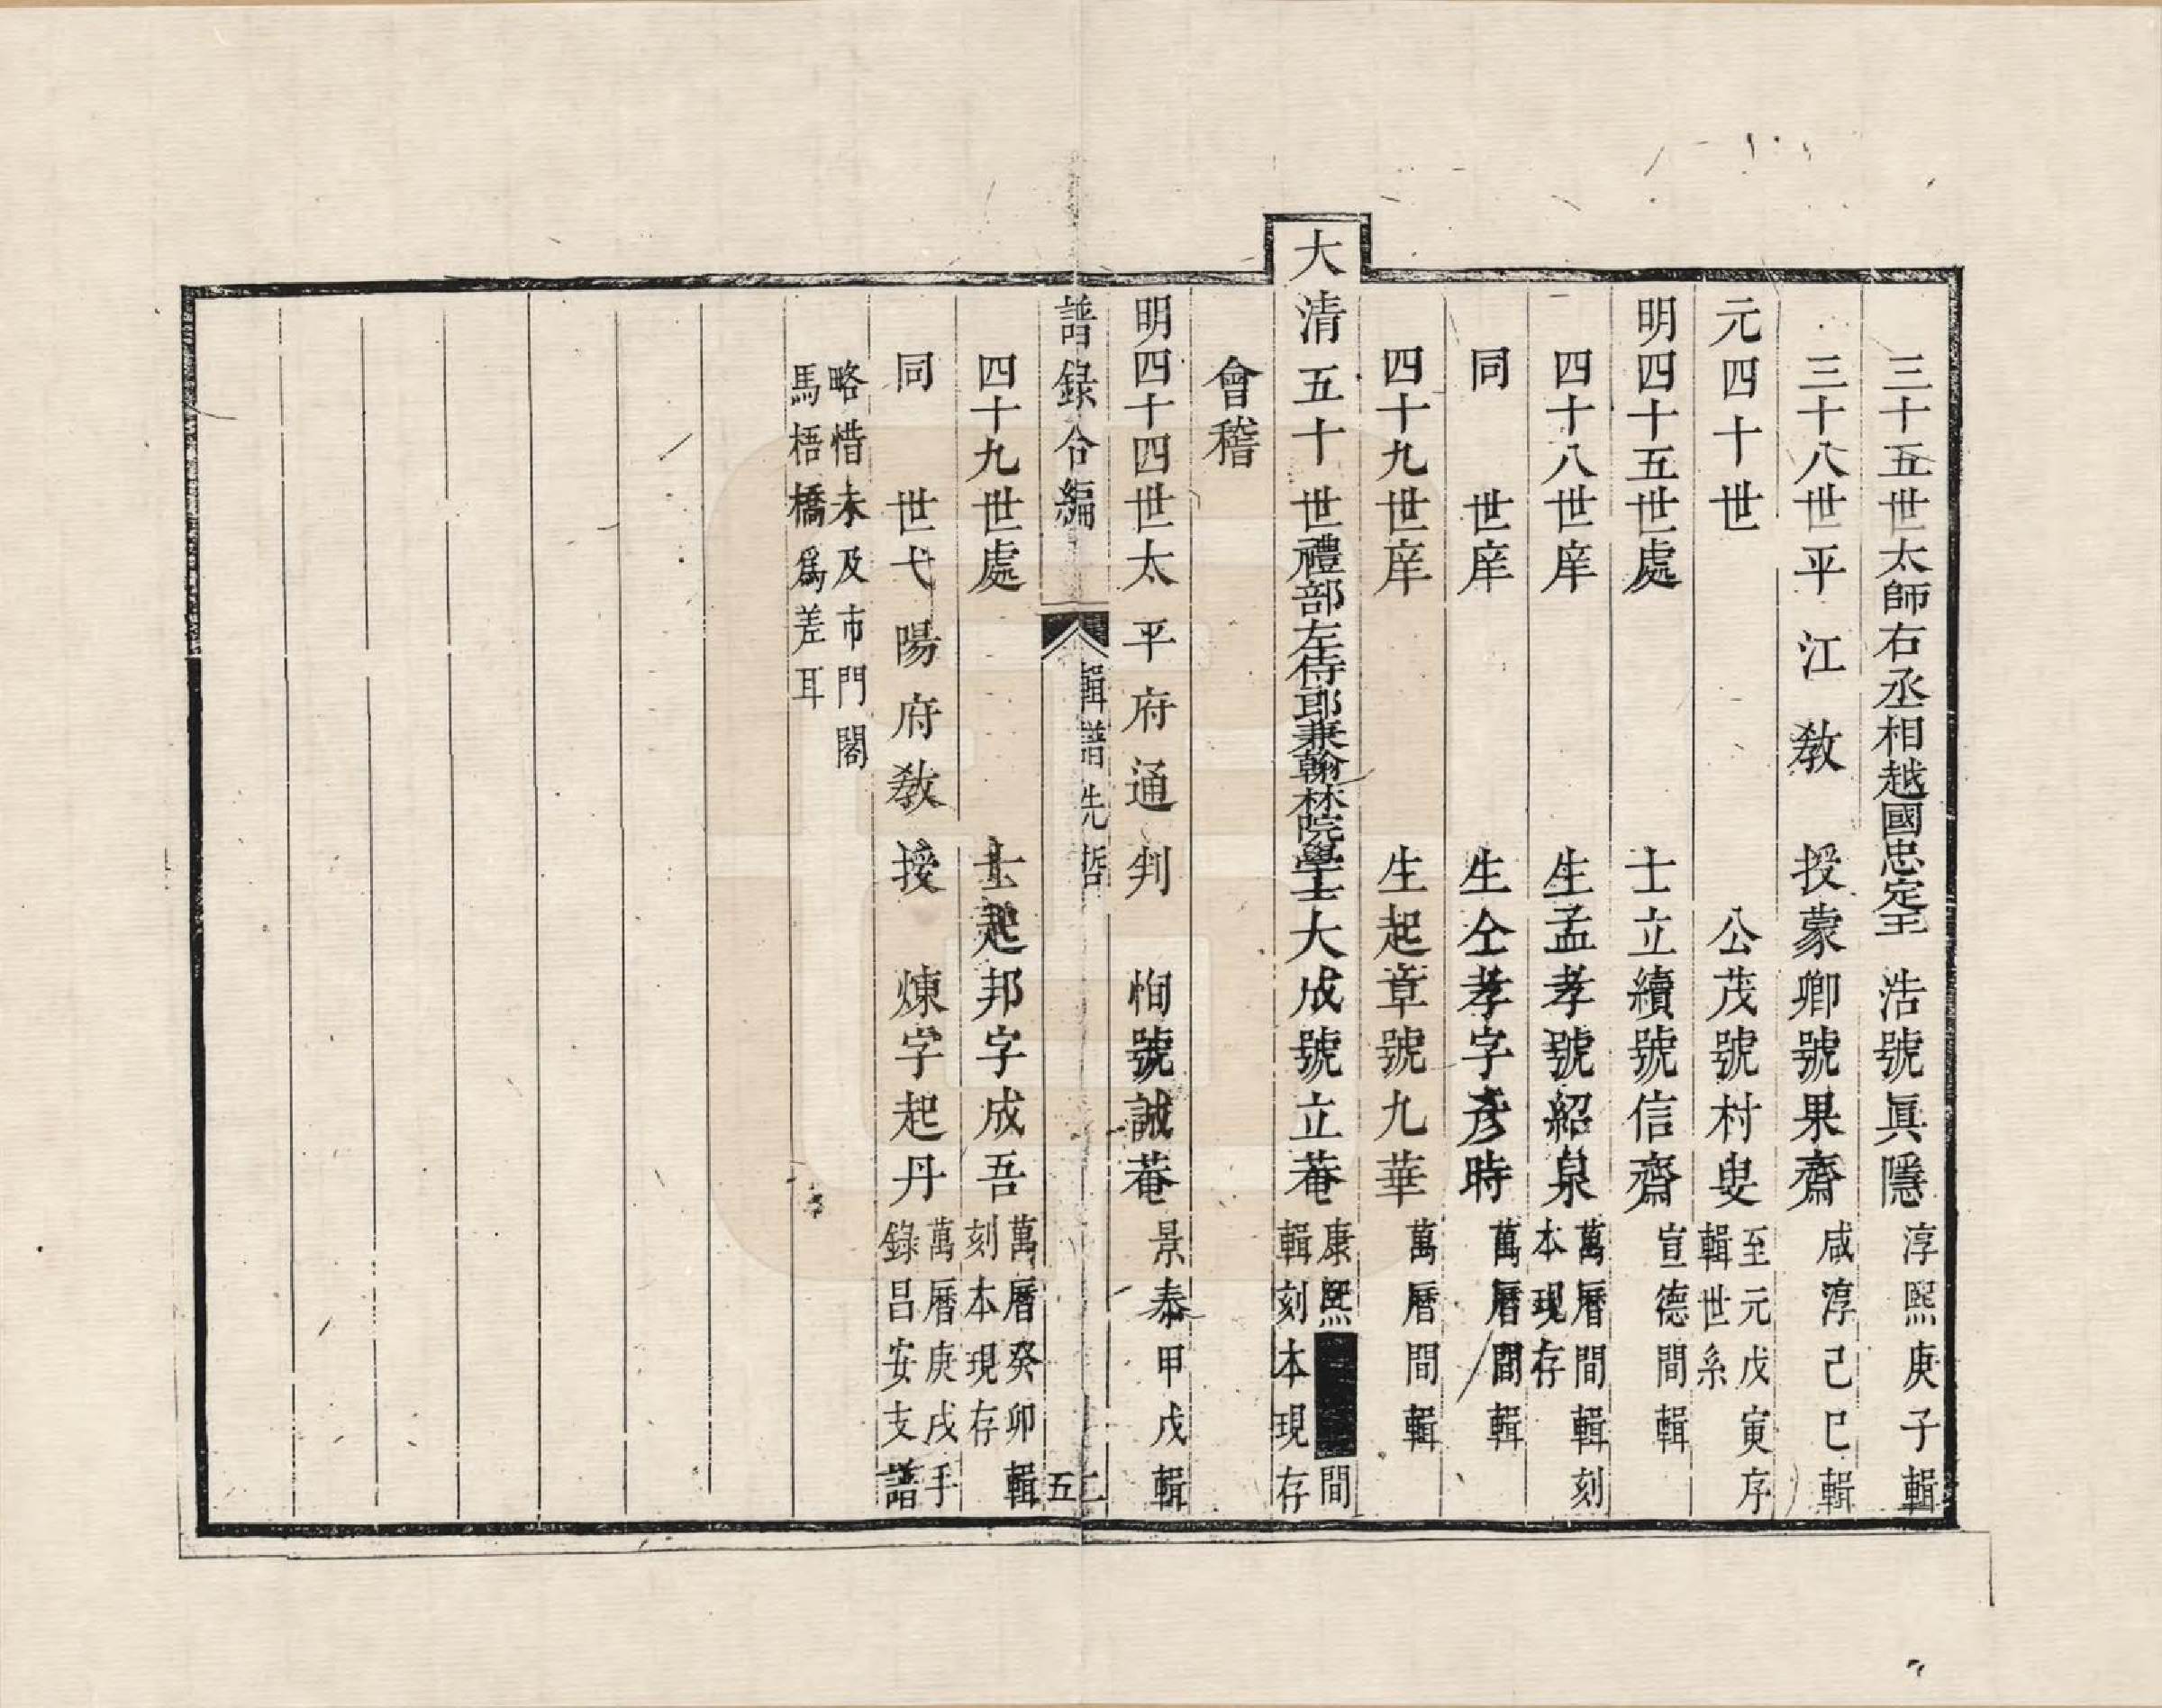 三十五世太師右丞相越國忠定王浩號眞隱淳熙庚子輯
三十八世平江教授蒙卿號果齋咸淳己巳輯
元四十世公茂號村叟至元戊寅序輯世系
明四十五世處士立續號信齋宣德間輯
四十八世庠生孟孝號紹泉萬曆間輯刻本現存
同世庠生仝孝字彥時萬曆間輯
四十九世庠生起章號九華萬曆間輯
大清五十世禮部左侍郎兼翰林院學士大成號立菴康熙間輯刻本現存
會稽
明四十四世太平府通判恂號誠菴景泰甲戌輯
譜錄合編 輯譜先哲 二五
四十九世處士起邦字成吾萬曆癸卯輯刻本現存
同世弋陽府教授煉字起丹萬曆庚戌手錄昌安支譜
略惜未及市門閣
馬梧橋爲差耳